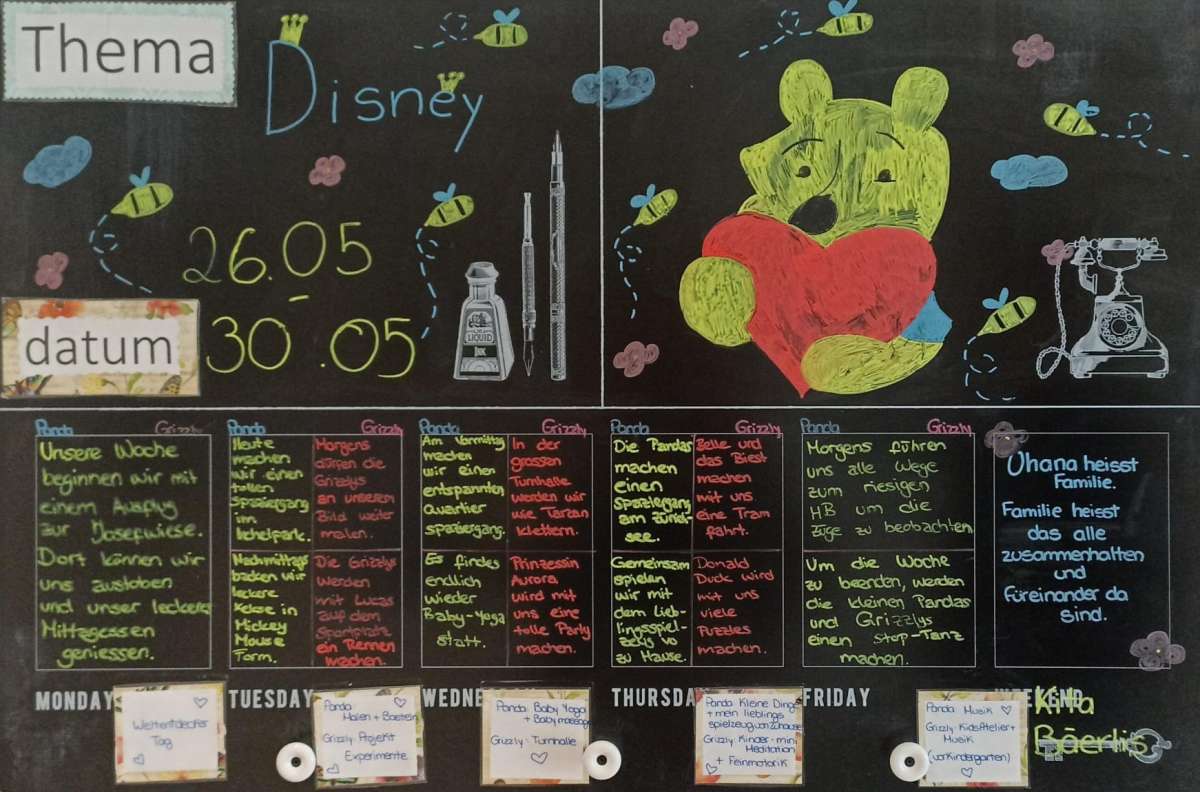 Thema
Disney
26.05
-
30.05
datum
LIQUID
INK
Panda Grizzly
Unsere Woche
beginnen wir mit
einem Ausflug
zur Josefwiese.
Dort können wir
uns austoben
und unser leckeres
Mittagessen
geniessen.
MONDAY
Weltentdecker
Tag
Panda Grizzly
Heute
machen
wir einen
tollen
Spaziergang
im
Morgens
dürfen die
Grizzlys
an unserem
Bild weiter
malen.
Nachmittags
backen wir
leckere
Kekse in
Mickey
Mouse
Form.
Die Grizzlys
werden
mit Lucas
auf dem
Sportplatz
ein Rennen
machen.
TUESDAY
Panda:
Malen + Basteln
Grizzly: Projekt
Experimente
Panda Grizzly
Am Vormittag
machen
wir einen
entspannten
Quartier
spaziergang.
In der
grossen
Turnhalle
werden wir
wie Tarzan
klettern.
Es findes
endlich
wieder
Baby-Yoga
statt.
Prinzessin
Aurora
wird mit
uns eine
tolle Party
machen.
WEDNE
Panda: Baby Yoga
+ Babymassage
Grizzly - Turnhalle
Panda Grizzly
Die Pandas
machen
einen
spaziergang
am Zürich-
see.
Belle und
das Biest
machen
mit uns
eine Tram
fahrt.
Gemeinsam
spielen
wir mit
dem Lieb-
lingsspiel-
zeug vo
zu Hause.
Donald
Duck wird
mit uns
viele
Puzzles
machen.
THURSDA
Panda Kleine Dinge
+ mein lieblings
spielzeug von zuhause
Grizzly: Kinder-mini
Meditation
+ Feinmotorik
Panda Grizzly
Morgens führen
uns alle Wege
zum riesigen
HB um die
Züge zu beobachten
Um die Woche
zu beenden, werden
die kleinen Pandas
und Grizzlys
einen Stop-Tanz
machen.
FRIDAY
Panda: Musik
Grizzly: KidsAtelier+
Musik
(vorKindergarten)
Ohana heisst
Familie.
Familie heisst
das alle
zusammenhalten
und
Füreinander da
sind.
WEEKEND
Kita
Bäerlis